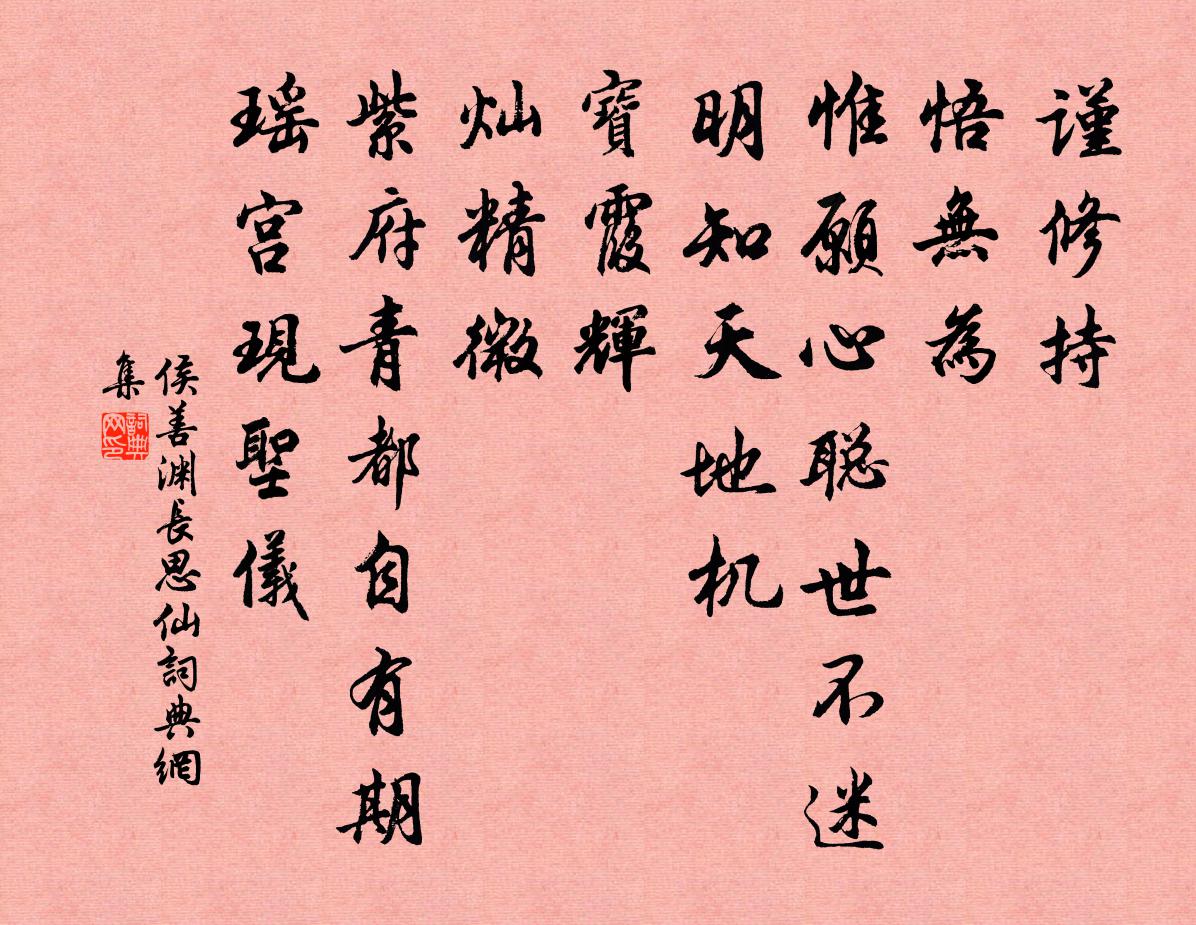 谨修持
悟無為
惟願心聪世不迷
明知天地机
寶霞輝
灿精微
紫府青都自有期
瑶宫現聖儀
侯善渊長思仙詞典網
集
詞典
网印